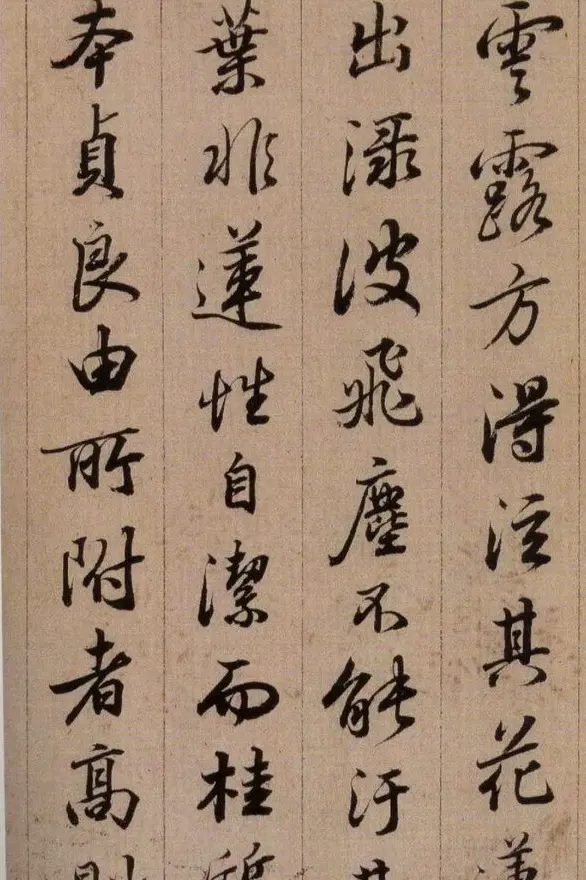 雲露方得泫其花
出渌波飛塵不能汙
葉非蓮性自潔而桂
夲貞良由所附者高